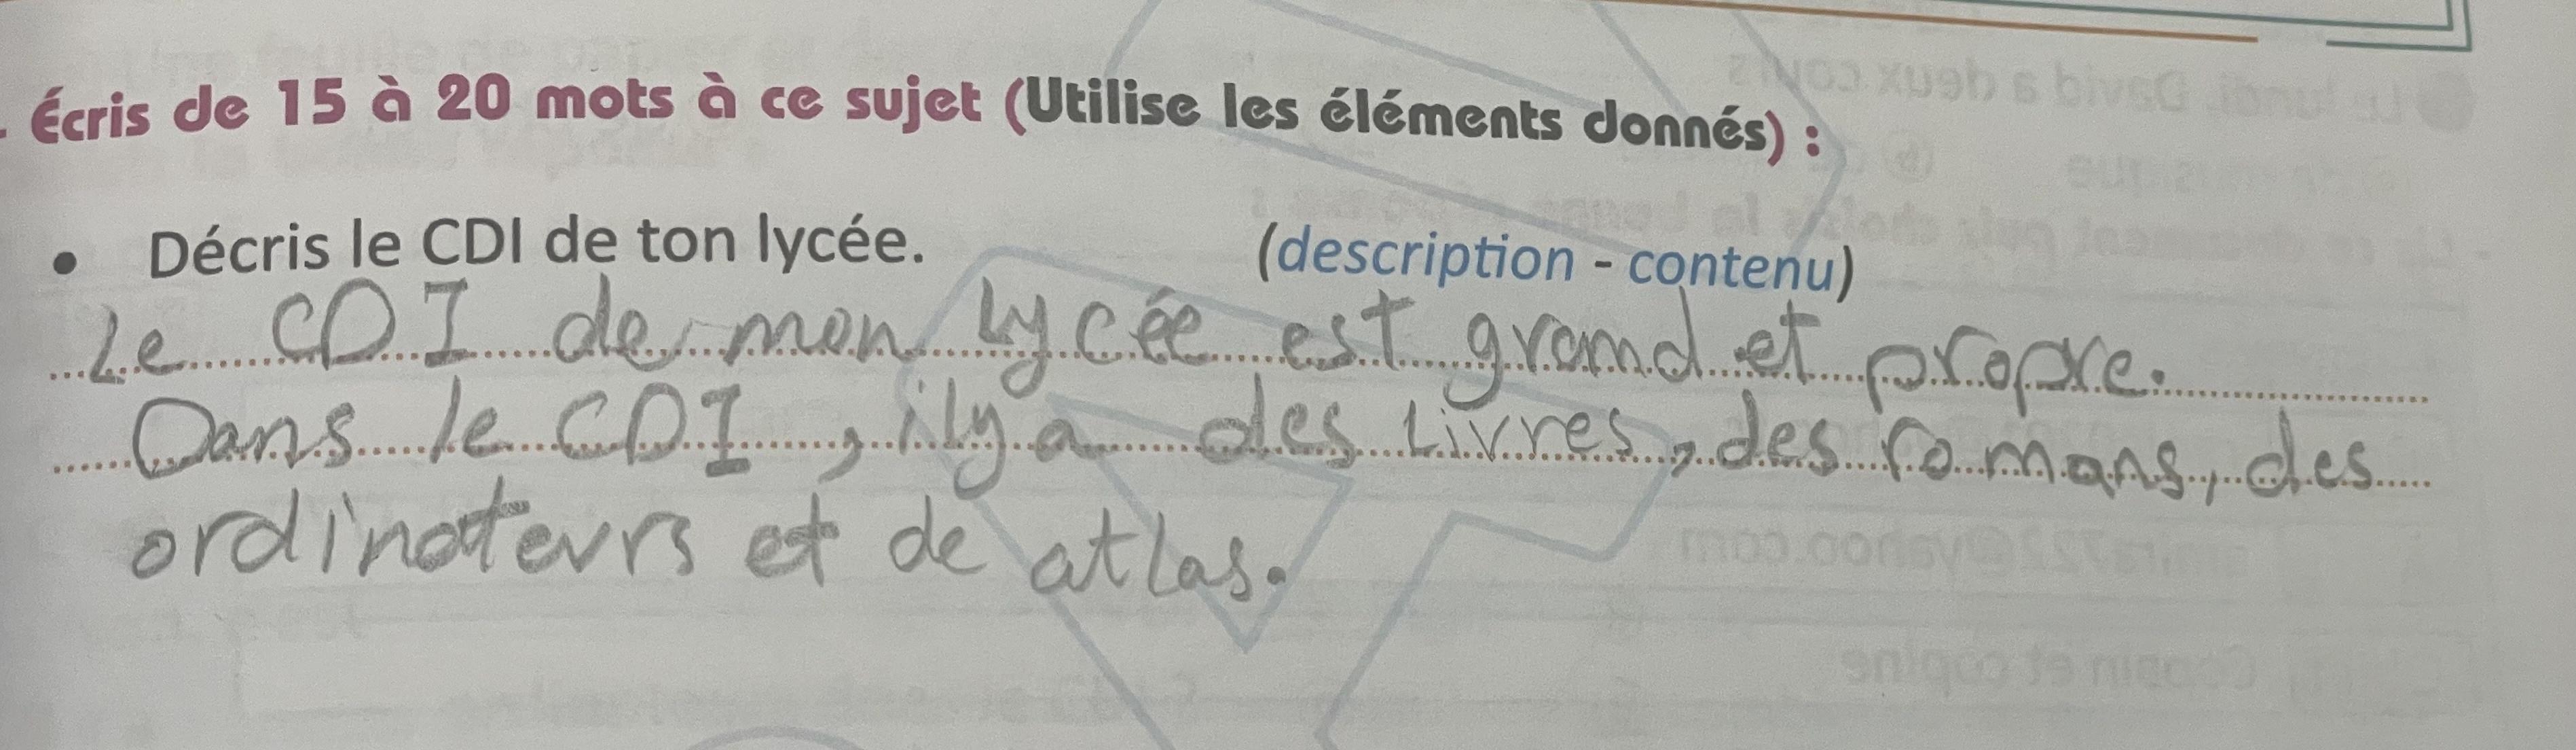 . Écris de 15 à 20 mots à ce sujet (Utilise les éléments donnés) :
• Décris le CDI de ton lycée. (description - contenu)
Le CDI de mon lycée est grand et propre.
Dans le CDI, il y a des livres, des romans, des
ordinateurs et de atlas.